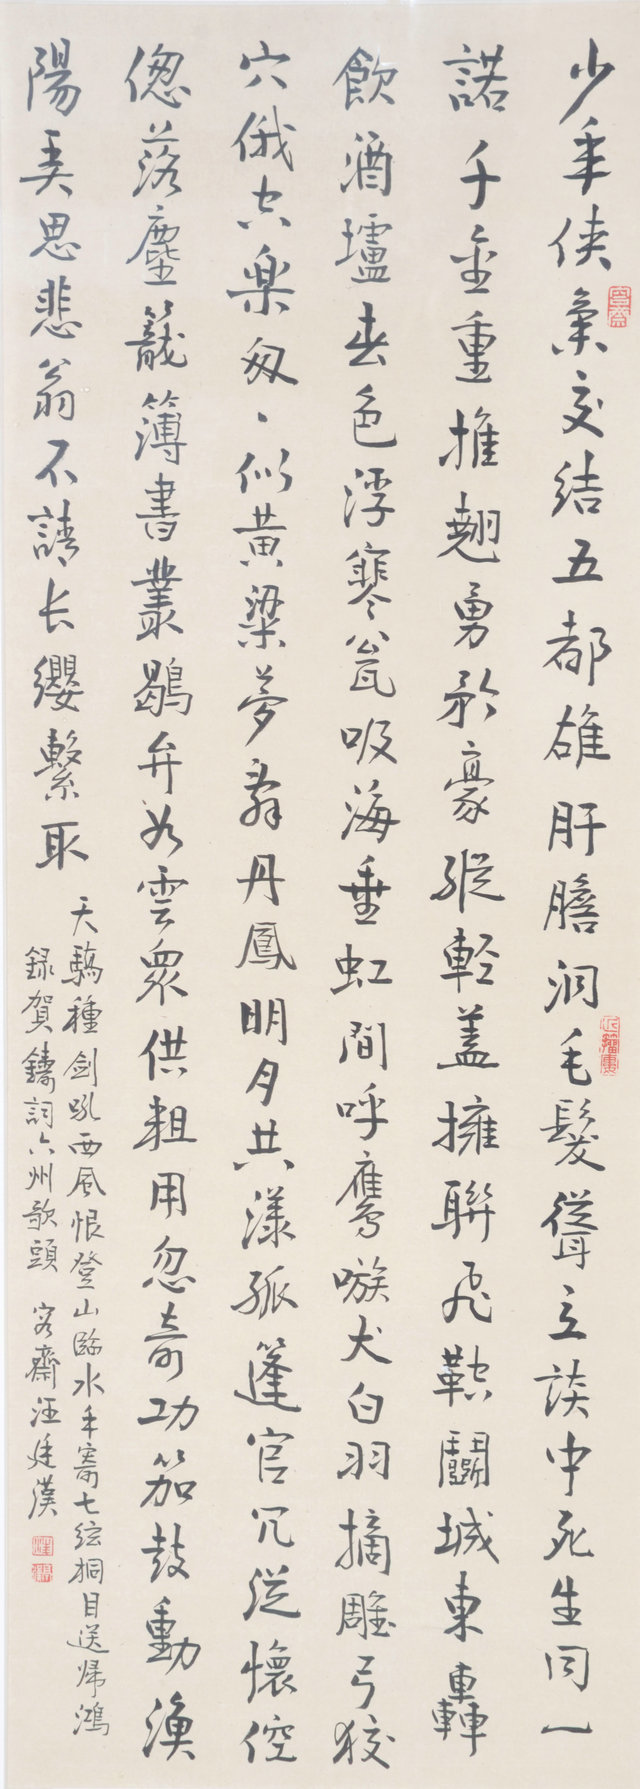 少年侠氣交結五都雄肝膽洞毛髮聳立談中死生同一
諾千金重推翹勇矜豪縱輕蓋擁聯飛鞚鬭城東轟
飲酒壚春色浮寒甕吸海垂虹間呼鷹嗾犬白羽摘雕弓狡
穴俄空樂匆、似黄粱夢辭丹鳳明月共漾孤篷官冗從懷倥
偬落塵籠簿書叢鶡弁如雲眾供粗用忽奇功笳鼓動漁
陽弄思悲翁不請长纓繫取
天驕種剑吼西風恨登山臨水手寄七絃桐目送帰鴻
録賀鑄詞六州歌頭 容齋汪廷漢